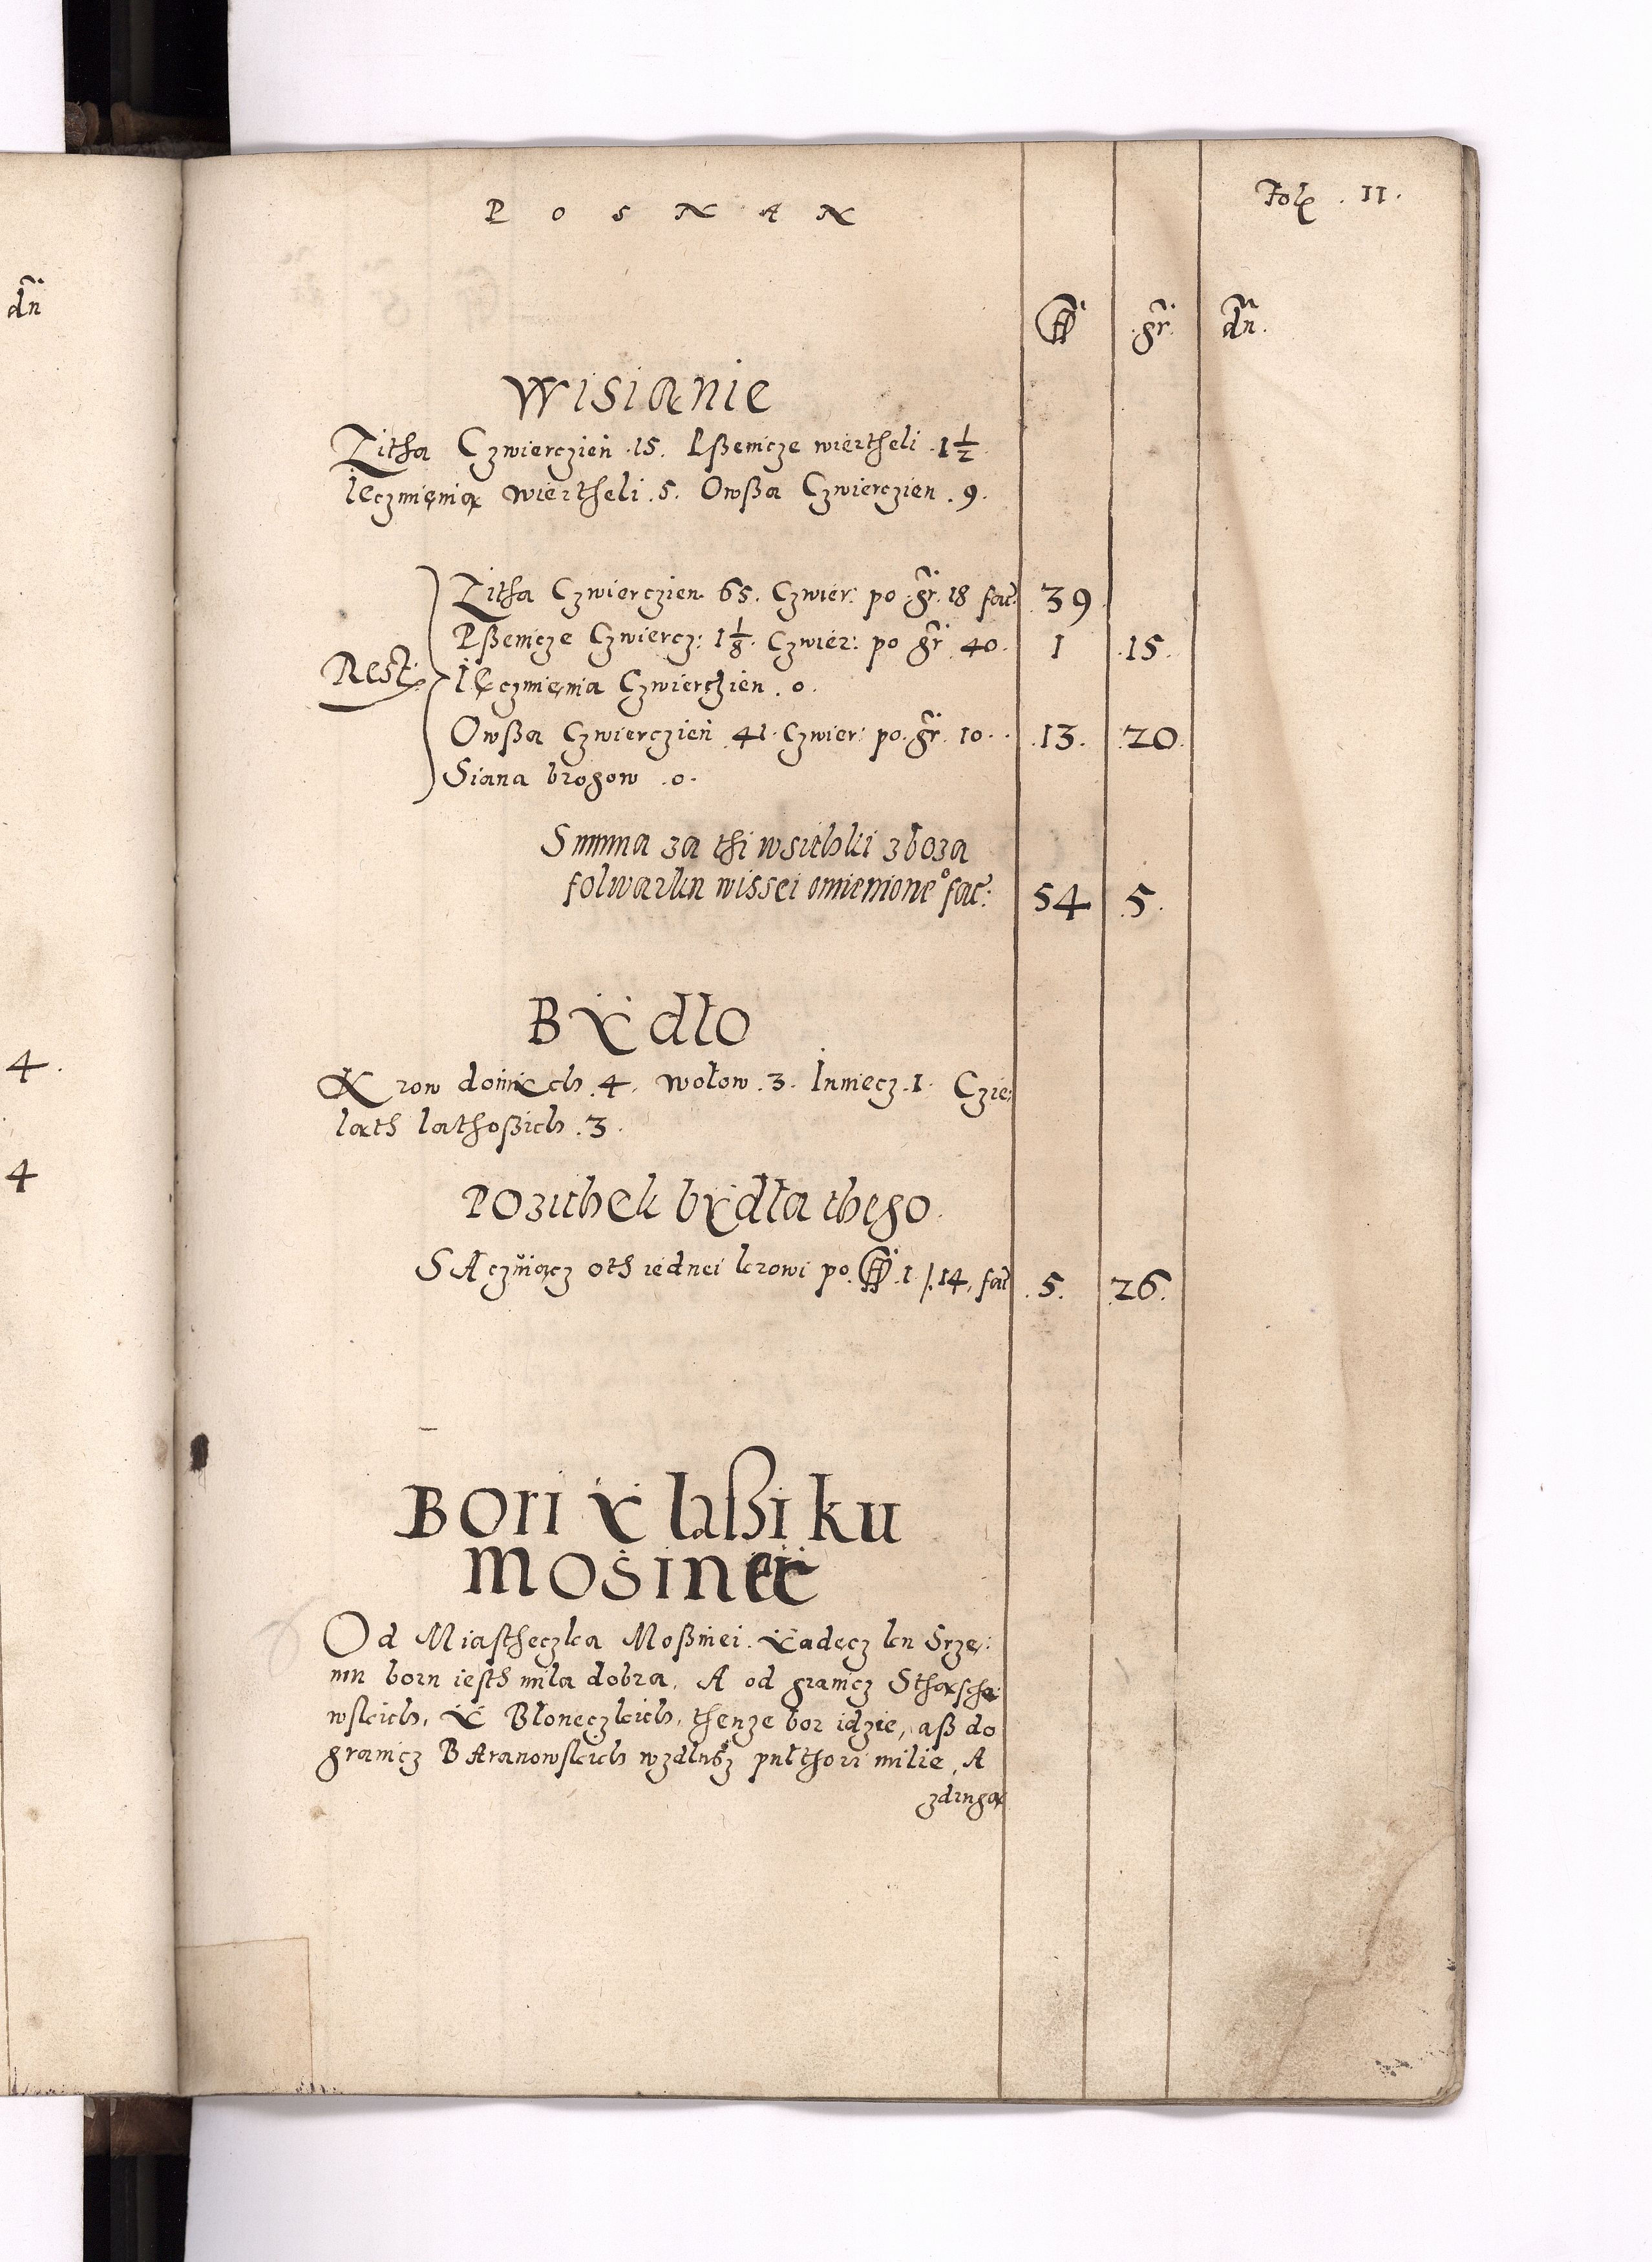 POSNAN
Fol. 11.
fl gr. dn.
dn
Wisianie
Zitha Czwierczien .15. Pßenicze wiertheli .1 1/2.
Ięczmięnia wiertheli .5. Owßa Czwierczien .9.
Zitha Czwierczien 65. Czwier: po gr. 18 fac. 39
Pßenicze Czwiercz: 1 1/8. Czwier: po gr. 40. 1 .15.
Rest.
Ięczmięnia Czwierczien .0.
Owßa Czwierczien 41. Czwier: po gr. 10. .13. .20.
Siana brogow .0.
Summa za thi wsithki zboza
folwarku wissei omienione° fac: 54 .5.
BYdło
Krow doinych .4. wołow .3. Iuniecz .1. Czie:
ląth lathoßich .3.
4.
Pozithek bydła thego
4
SAcziniącz oth iednei krowi po. fl .1/.14. fac .5. 26.
Bori Y laßi ku
mosinei
Od Miastheczka Moßinei. Yadącz ku Srze:
mu boru iesth mila dobra, A od granicz
wskich, Y Błoneczkich, thenze bor idzie, aß do
granicz BAranowskich wzdłusz pułthori milie, A
zdrugą